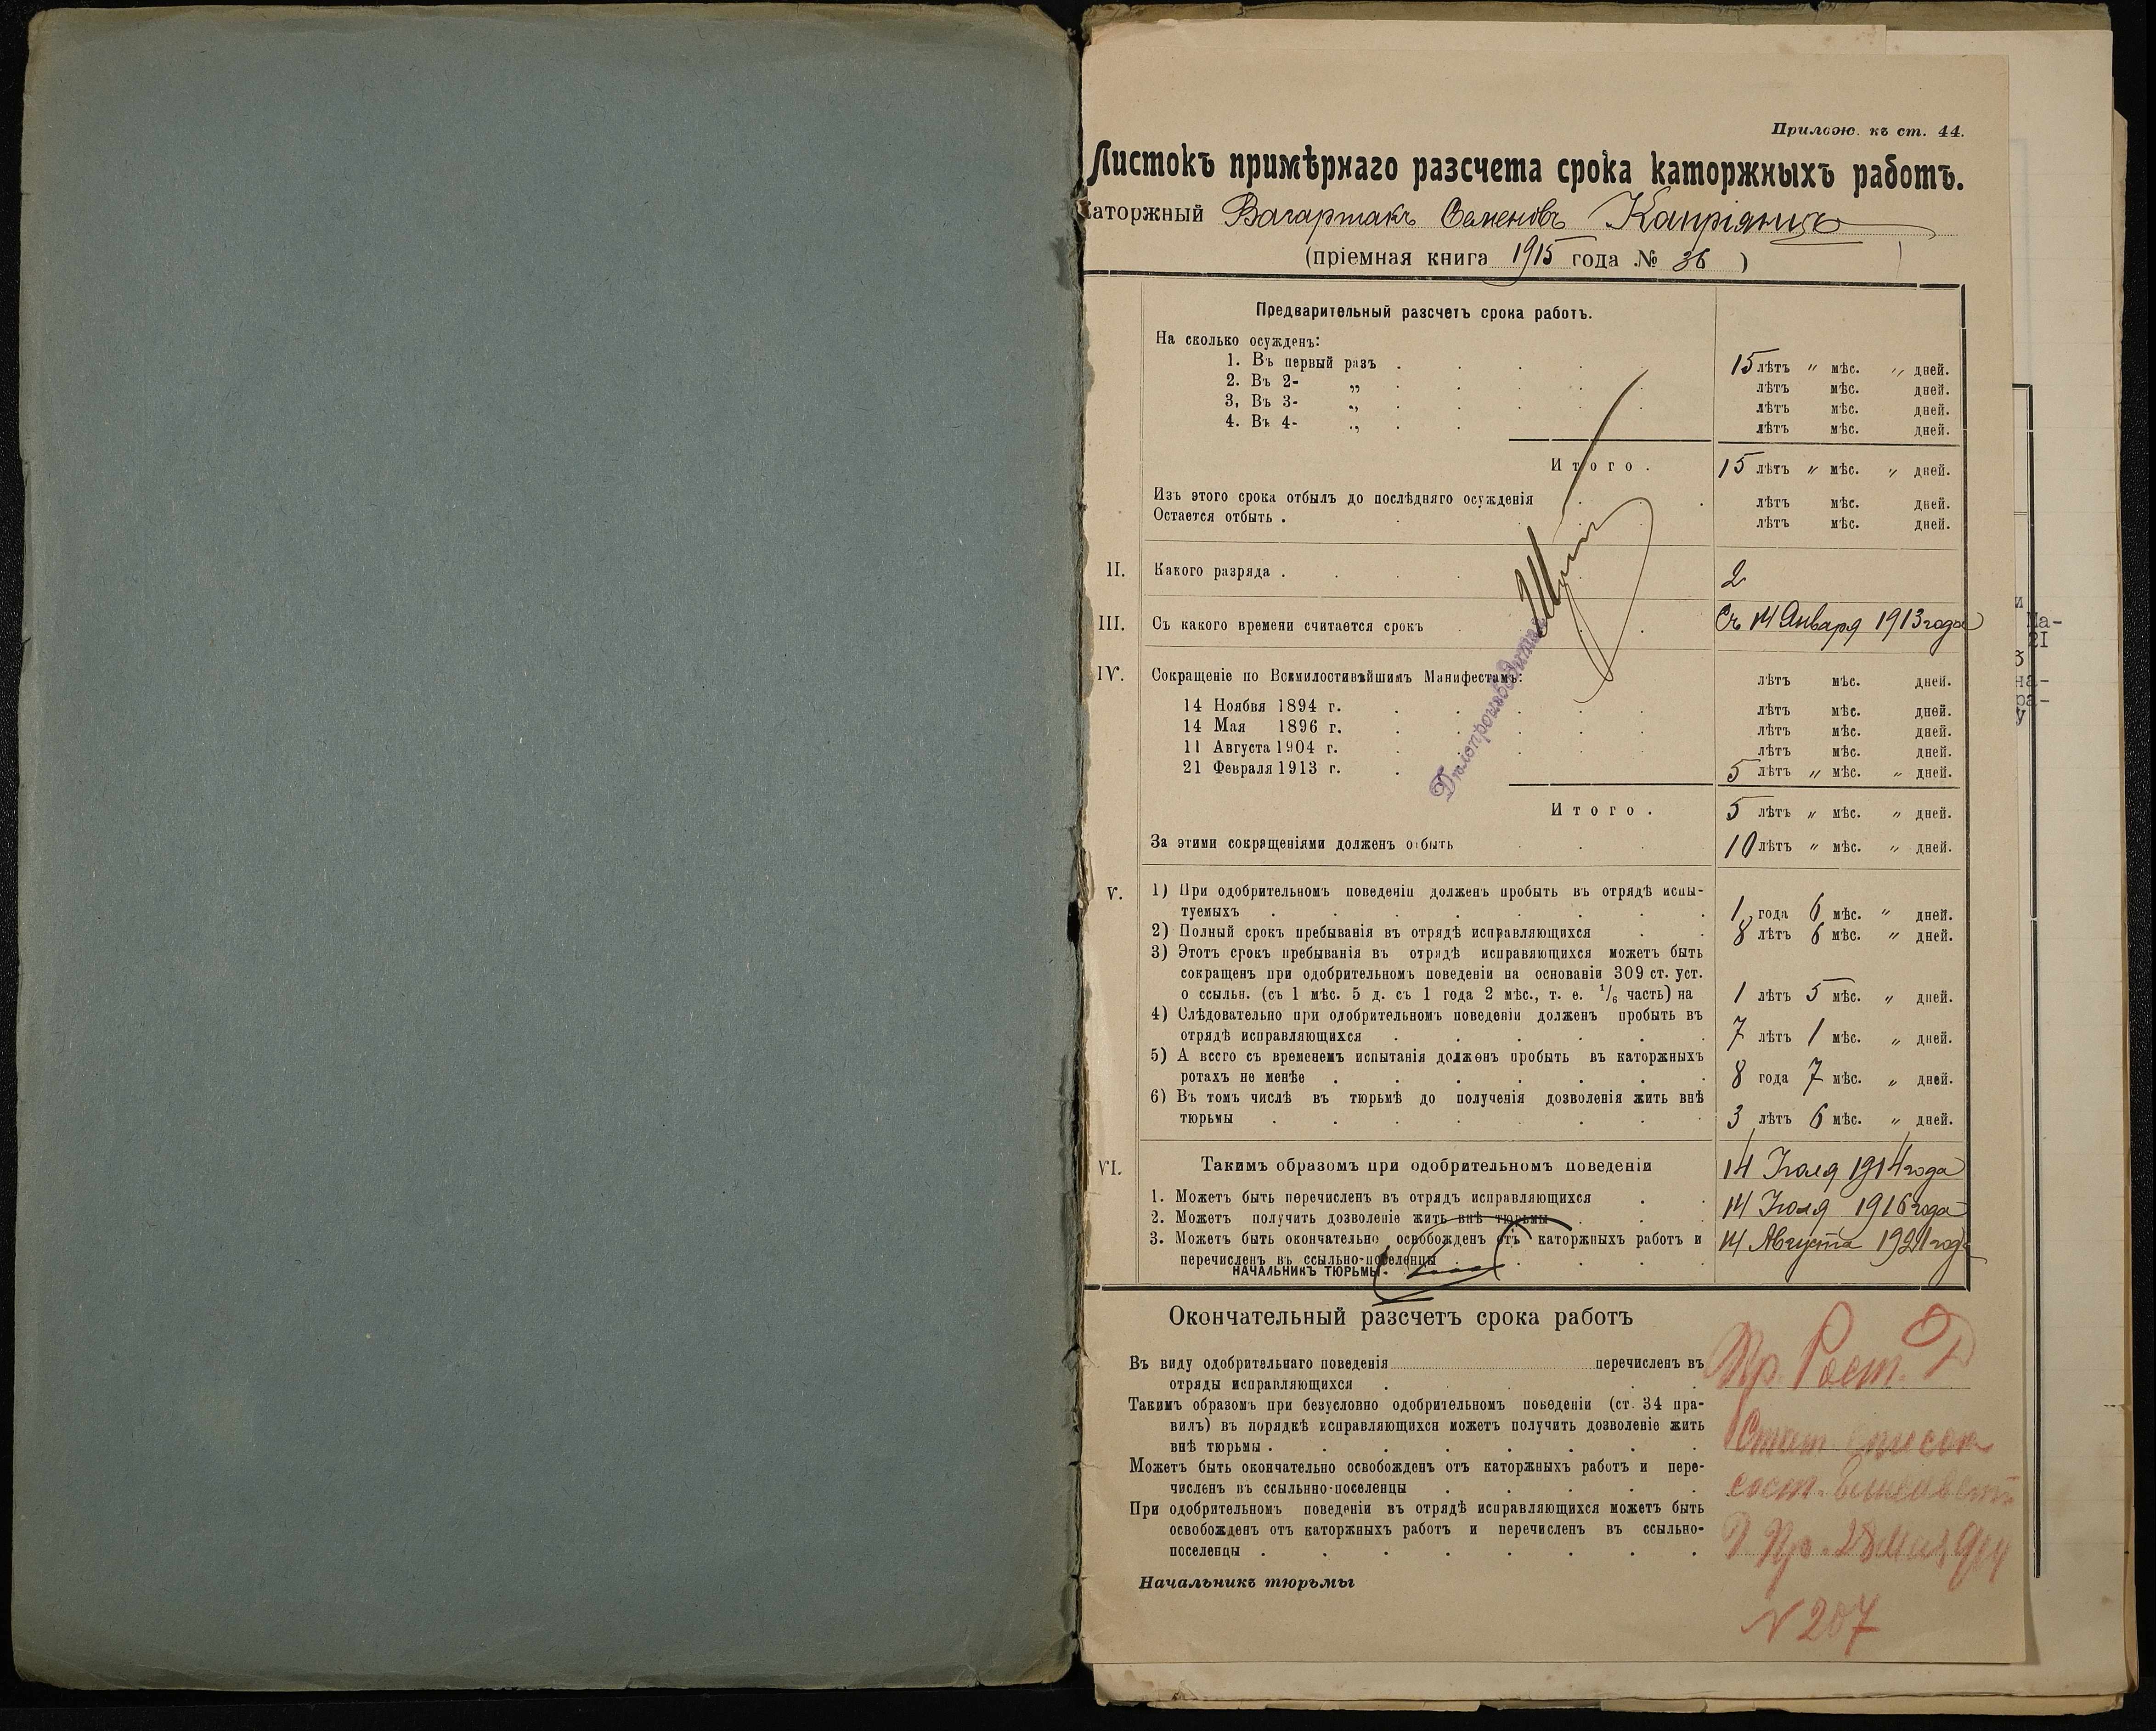 Прилож. къ ст. 44.
Листокъ примѣрнаго разсчета срока каторжныхъ работъ.
Каторжный Вагаршакъ Семеновъ
(пріемная книга 1915 года № 36 )
Предварительный разсчетъ срока работъ.
На сколько осужденъ:
1. Въ первый разъ . . . . . 15 лѣтъ " мѣс. " дней.
2. Въ 2- „ . . . . . лѣтъ мѣс. дней.
3, Въ 3- „ . . . . . лѣтъ мѣс. дней.
4. Въ 4- „ . . лѣтъ мѣс. дней.
Итого. 15 лѣтъ " мѣс. " дней.
Изъ этого срока отбылъ до послѣдняго осужденія . . лѣтъ мѣс. дней.
Остается отбыть . . . . . лѣтъ мѣс. дней.
II. Какого разряда . . . . . 2
III. Съ какого времени считается срокъ . . . Съ 14 Января 1913 года
IV. Сокращеніе по Всемилостивѣйшимъ Манифестамъ: лѣтъ мѣс. дней.
14 Ноября 1894 г. . . . . . лѣтъ мѣс. дней.
14 Мая 1896 г. . . . . . лѣтъ мѣс. дней.
11 Августа 1904 г. . . . . лѣтъ мѣс. дней.
21 Февраля 1913 г. . 5 лѣтъ " мѣс. " дней.
Дѣлопроизводитель
Итого. 5 лѣтъ " мѣс. " дней.
За этими сокращеніями долженъ отбыть . . 10 лѣтъ " мѣс. " дней.
V. 1) При одобрительномъ поведеніи долженъ пробыть въ отрядѣ испы-
туемыхъ . . . . . . . . 1 года 6 мѣс. " дней.
2) Полный срокъ пребыванія въ отрядѣ исправляющихся . . 8 лѣтъ 6 мѣс. " дней.
3) Этотъ срокъ пребыванія въ отрядѣ исправяющихся можетъ быть
сокращенъ при одобрительномъ поведеніи на основаніи 309 ст. уст.
о ссыльн. (съ 1 мѣс. 5 д. съ 1 года 2 мѣс., т. е. 1/6 часть) на 1 лѣтъ 5 мѣс. " дней.
4) Слѣдовательно при одобрительномъ поведеніи долженъ пробыть въ
отрядѣ исправляющихся . . . . . . 7 лѣтъ 1 мѣс. " дней.
5) А всего съ временемъ испытанія долженъ пробыть въ каторжныхъ
ротахъ не менѣе . . . . . . . 8 года 7 мѣс. " дней.
6) Въ томъ числѣ въ тюрьмѣ до полученія дозволенія жить внѣ
тюрьмы . . . . . . . . 3 лѣтъ 6 мѣс. " дней.
VI. Такимъ образомъ при одобрительномъ поведеніи 14 Іюля 1914 года
1. Можетъ быть перечисленъ въ отрядъ исправляющихся . . 14 Іюля 1916 года
2. Можетъ получить дозволеніе жить внѣ тюрьмы . . .
3. Можетъ быть окончательно освобожденъ отъ каторжныхъ работъ и 14 Августа 1921 года
перечисленъ въ ссыльно-поселенцы . . . . .
НАЧАЛЬНИКЪ ТЮРЬМЫ.
Окончательный разсчетъ срока работъ
Въ виду одобрительнаго поведенія перечисленъ въ
отряды исправляющихся . . . . .
Такимъ образомъ при безусловно одобрительномъ поведеніи (ст. 34 пра-
вилъ) въ порядкѣ исправляющихся можетъ получить дозволеніе жить
внѣ тюрьмы . . . . . . . .
Можетъ быть окончательно освобожденъ отъ каторжныхъ работъ и пере-
численъ въ ссыльнно-поселенцы . . . . .
При одобрительномъ поведеніи въ отрядѣ исправляющихся можетъ быть
освобожденъ отъ каторжныхъ работъ и перечисленъ въ ссыльно-
поселенцы . . . . . . . .
Начальникъ тюрьмы
Стат. список
N 207